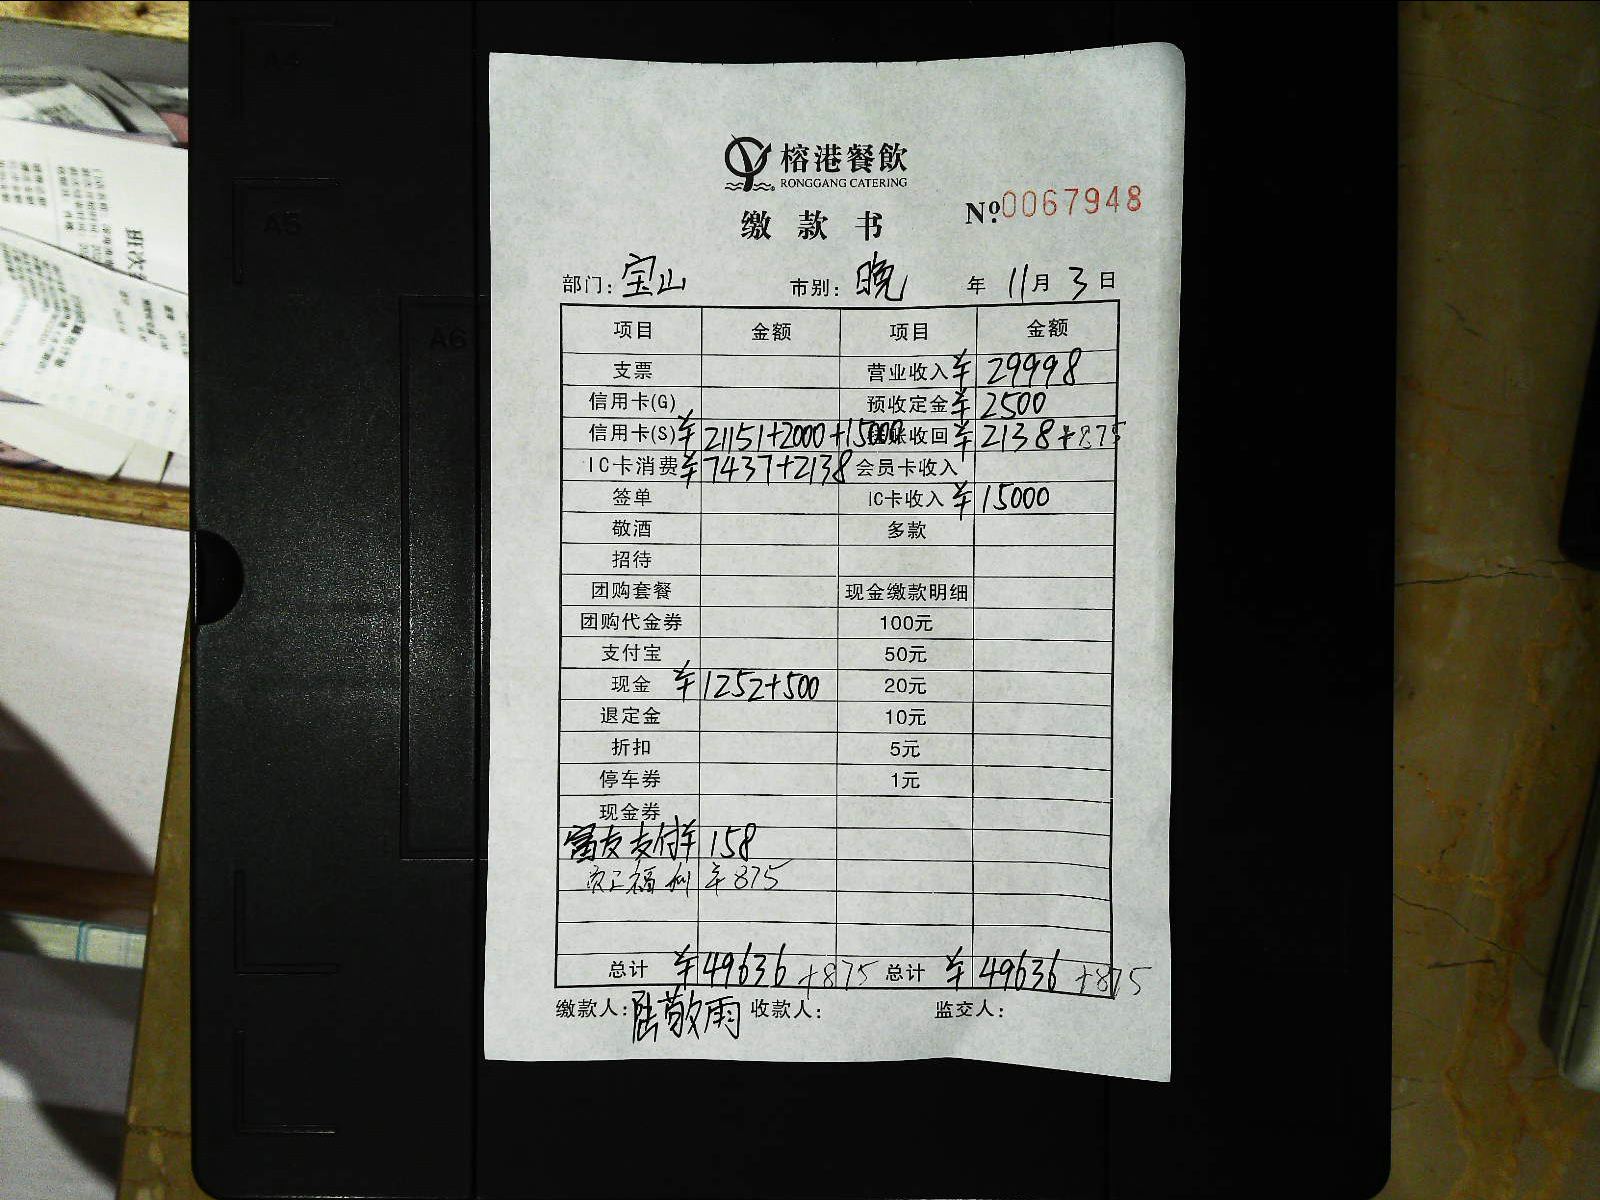 榕港餐飲
RONGGANG CATERING
缴款书 №:0067948
部门: 宝山 市别: 晚 年 11月 3日
项目 金额 项目 金额
支票 营业收入 ¥29998
信用卡(G) 预收定金 ¥2500
信用卡(S) ¥21151+2000+15000 账收回 ¥2138+875
IC卡消费 ¥7437+2138 会员卡收入
签单 IC卡收入 ¥15000
敬酒 多款
招待
团购套餐 现金缴款明细
团购代金券 100元
支付宝 50元
现金 ¥1252+500 20元
退定金 10元
折扣 5元
停车券 1元
现金券
富友支付 ¥158
福州 ¥875
总计 ¥49636+875 总计 ¥49636+875
缴款人: 陆敬雨 收款人: 监交人:
A5
A6